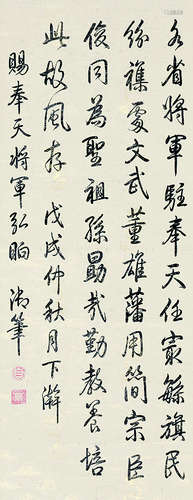 各省將軍駐奉天任最緐旗民
紛襍處文武董雄藩用簡宗臣
俊同為聖祖孫勗哉勤教養培
此故風存 戊戌仲秋月下澣
賜奉天將軍弘晌 御筆